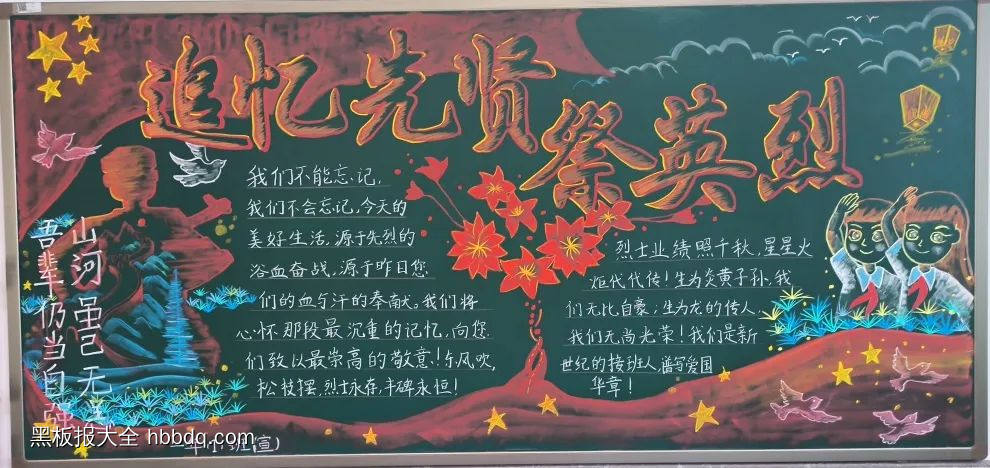 追忆先贤
祭英烈
山河虽已无
吾辈仍当自强
我们不能忘记,
我们不会忘记,今天的
美好生活,源于先烈的
浴血奋战,源于昨日您
们的血与汗的奉献。我们将
心怀那段最沉重的记忆,向您
们致以最崇高的敬意!午风吹,
松枝摆,烈士永存,丰碑永恒!
烈士业绩照千秋,星星火
炬代代传!生为炎黄子孙,我
们无比自豪;生为龙的传人,
我们无尚光荣!我们是新
世纪的接班人,谱写爱国
华章!
黑板报大全 hbbdq.com